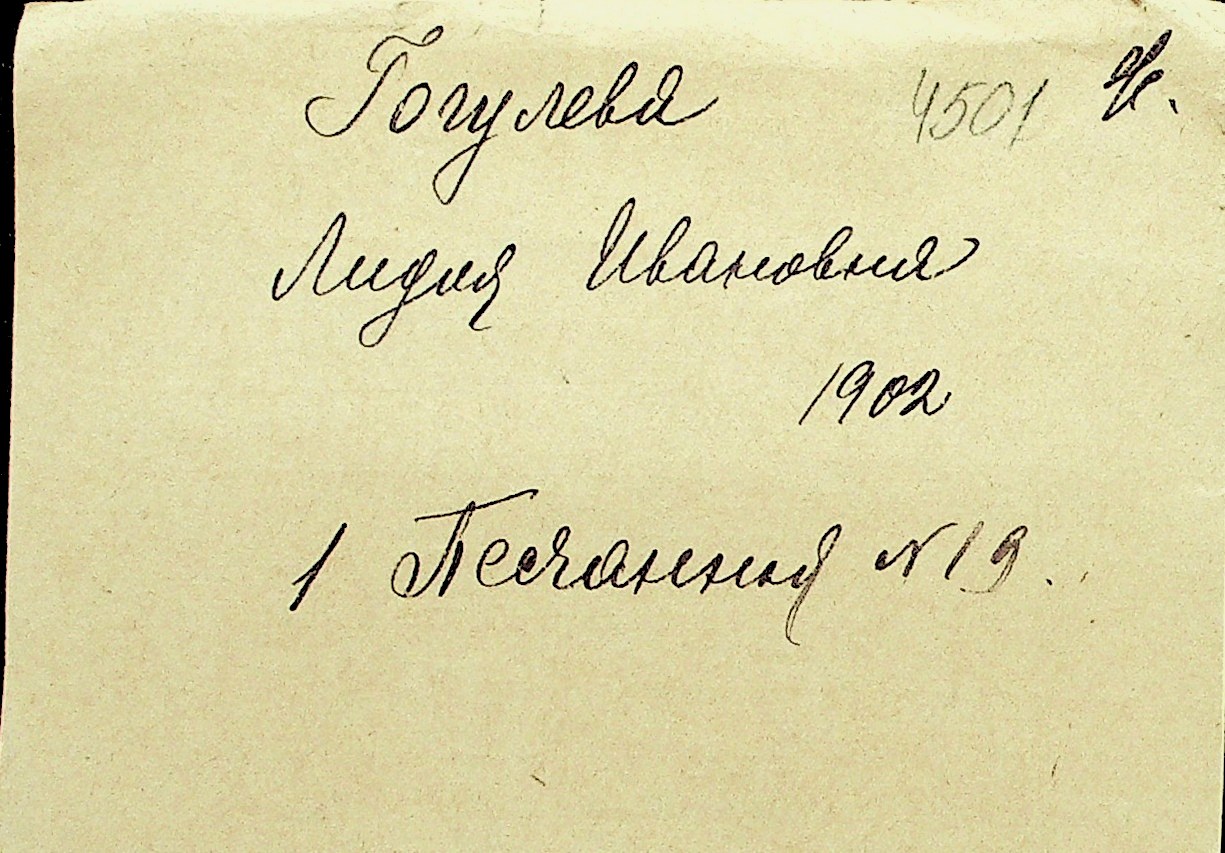 Гогулева 4501
Лидия Ивановна
1902
1 Песчанная N 19.